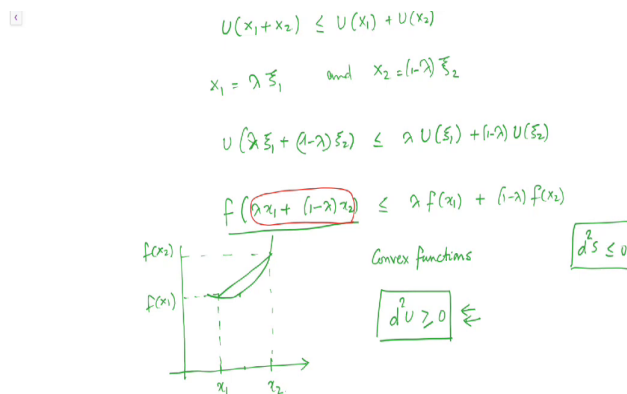 U(x₁+x₂) ≤ U(x₁) + U(x₂)
x₁ = λ ξ₁ and x₂ = (1-λ) ξ₂
U(λ ξ₁ + (1-λ) ξ₂) ≤ λ U(ξ₁) + (1-λ) U(ξ₂)
f(λx₁ + (1-λ)x₂) ≤ λ f(x₁) + (1-λ) f(x₂)
f(x₂)
Convex functions
d²S ≤ 0
f(x₁)
d²U ≥ 0 ⇐
x₁ x₂